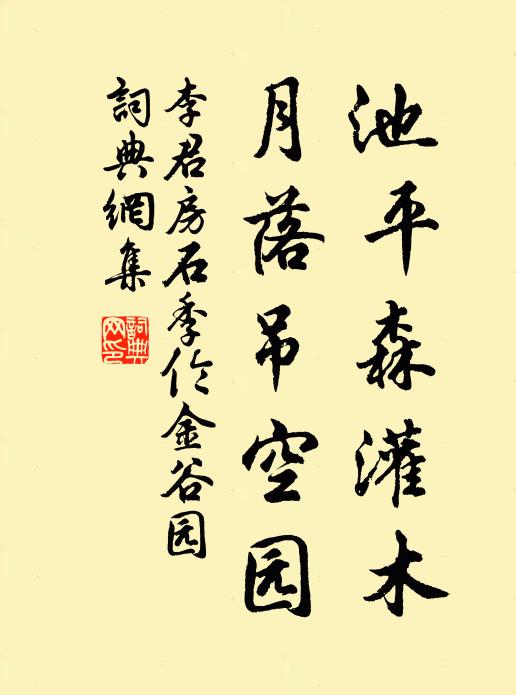 池平森灌木
月落吊空园
李君房石季伦金谷园
詞典網集
詞典
网印